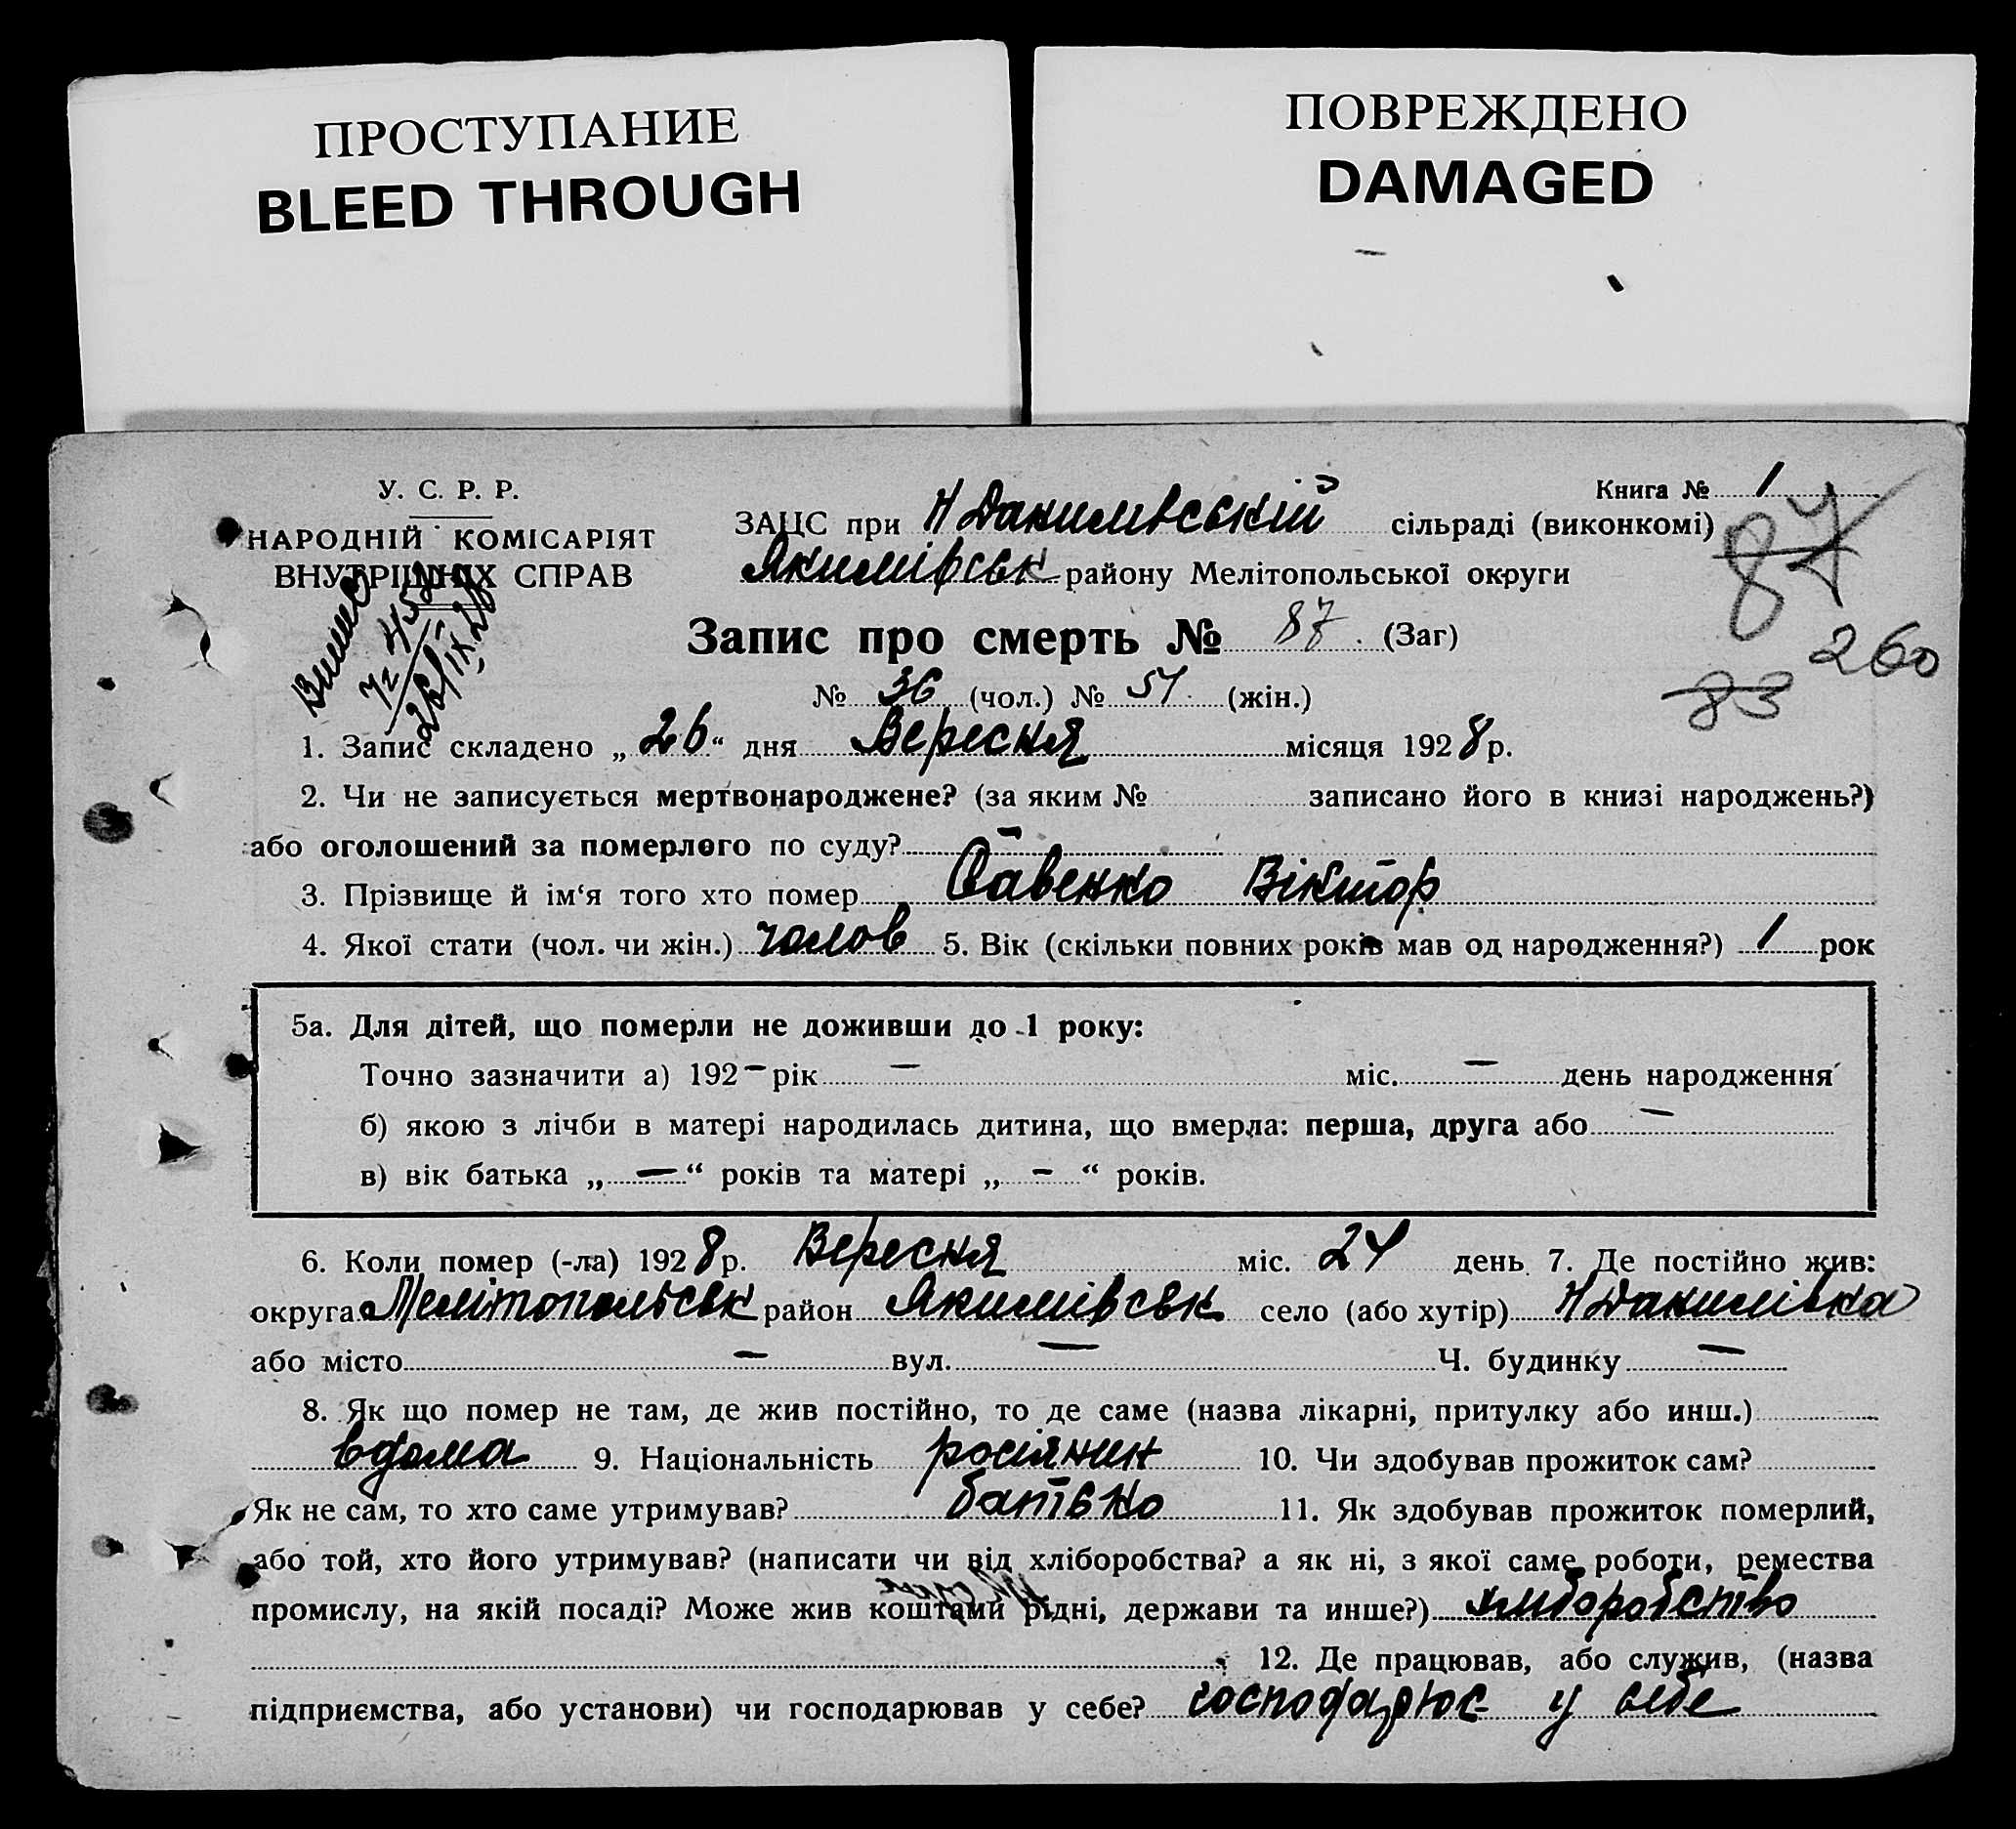 ПРОСТУПАНИЕ
BLEED THROUGH
ПОВРЕЖДЕНО
DAMAGED
У. С. Р. Р.
НАРОДНІЙ КОМІСАРІЯТ
ВНУТРІШНІХ СПРАВ
Книга № 1
ЗАЦС при Н Данилівській сільраді (виконкомі)
Якимівськ району Мелітопольської округи
87
260
83
26/IX 28
Запис про смерть № 87. (Заг)
№ 36 (чол.) № 51 (жін.)
1. Запис складено „ 26 “ дня Вересня місяця 1928 р.
2. Чи не записується мертвонароджене? (за яким № записано його в книзі народжень?)
або оголошений за померлого по суду? —
3. Прізвище й ім‘я того хто помер Савенко Віктор
4. Якої стати (чол. чи жін.) чолов 5. Вік (скільки повних років мав од народження?) 1 рок
5а. Для дітей, що померли не доживши до 1 року:
Точно зазначити а) 192 – рік — міс. — день народження
б) якою з лічби в матері народилась дитина, що вмерла: перша, друга або —
в) вік батька „ — “ років та матері „ - “ років.
6. Коли помер (-ла) 1928 р. Вересня міс. 24 день 7. Де постійно жив:
округа Мелітопольськ район Якимівськ село (або хутір) Н Данилівка
або місто — вул. — Ч. будинку —
8. Як що помер не там, де жив постійно, то де саме (назва лікарні, притулку або инш.)
вдома 9. Національність росіянин 10. Чи здобував прожиток сам?
Як не сам, то хто саме утримував? батько 11. Як здобував прожиток померлий,
або той, хто його утримував? (написати чи від хліборобства? а як ні, з якої саме роботи, ремества
промислу, на якій посаді? Може жив коштами рідні, держави та инше?) хліборобство
12. Де працював, або служив, (назва
підприємства, або установи) чи господарював у себе? господарює у себе